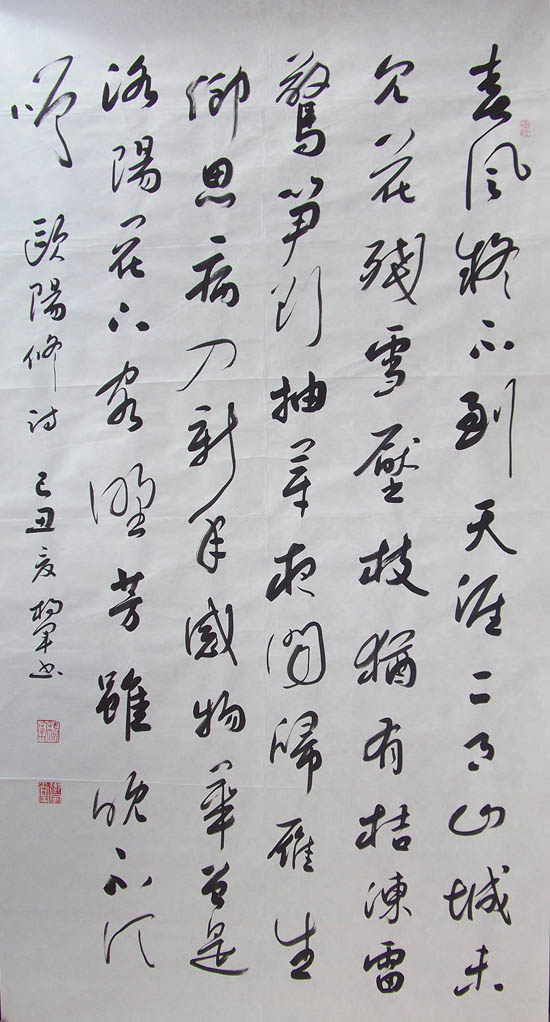 春風疑不到天涯二月山城未
見花殘雪壓枝猶有桔凍雷
驚筍欲抽芽夜聞歸雁生
鄉思病入新年感物華曾是
洛陽花下客野芳雖晚不須
嗟 歐陽修詩 己丑夏 楊軍书